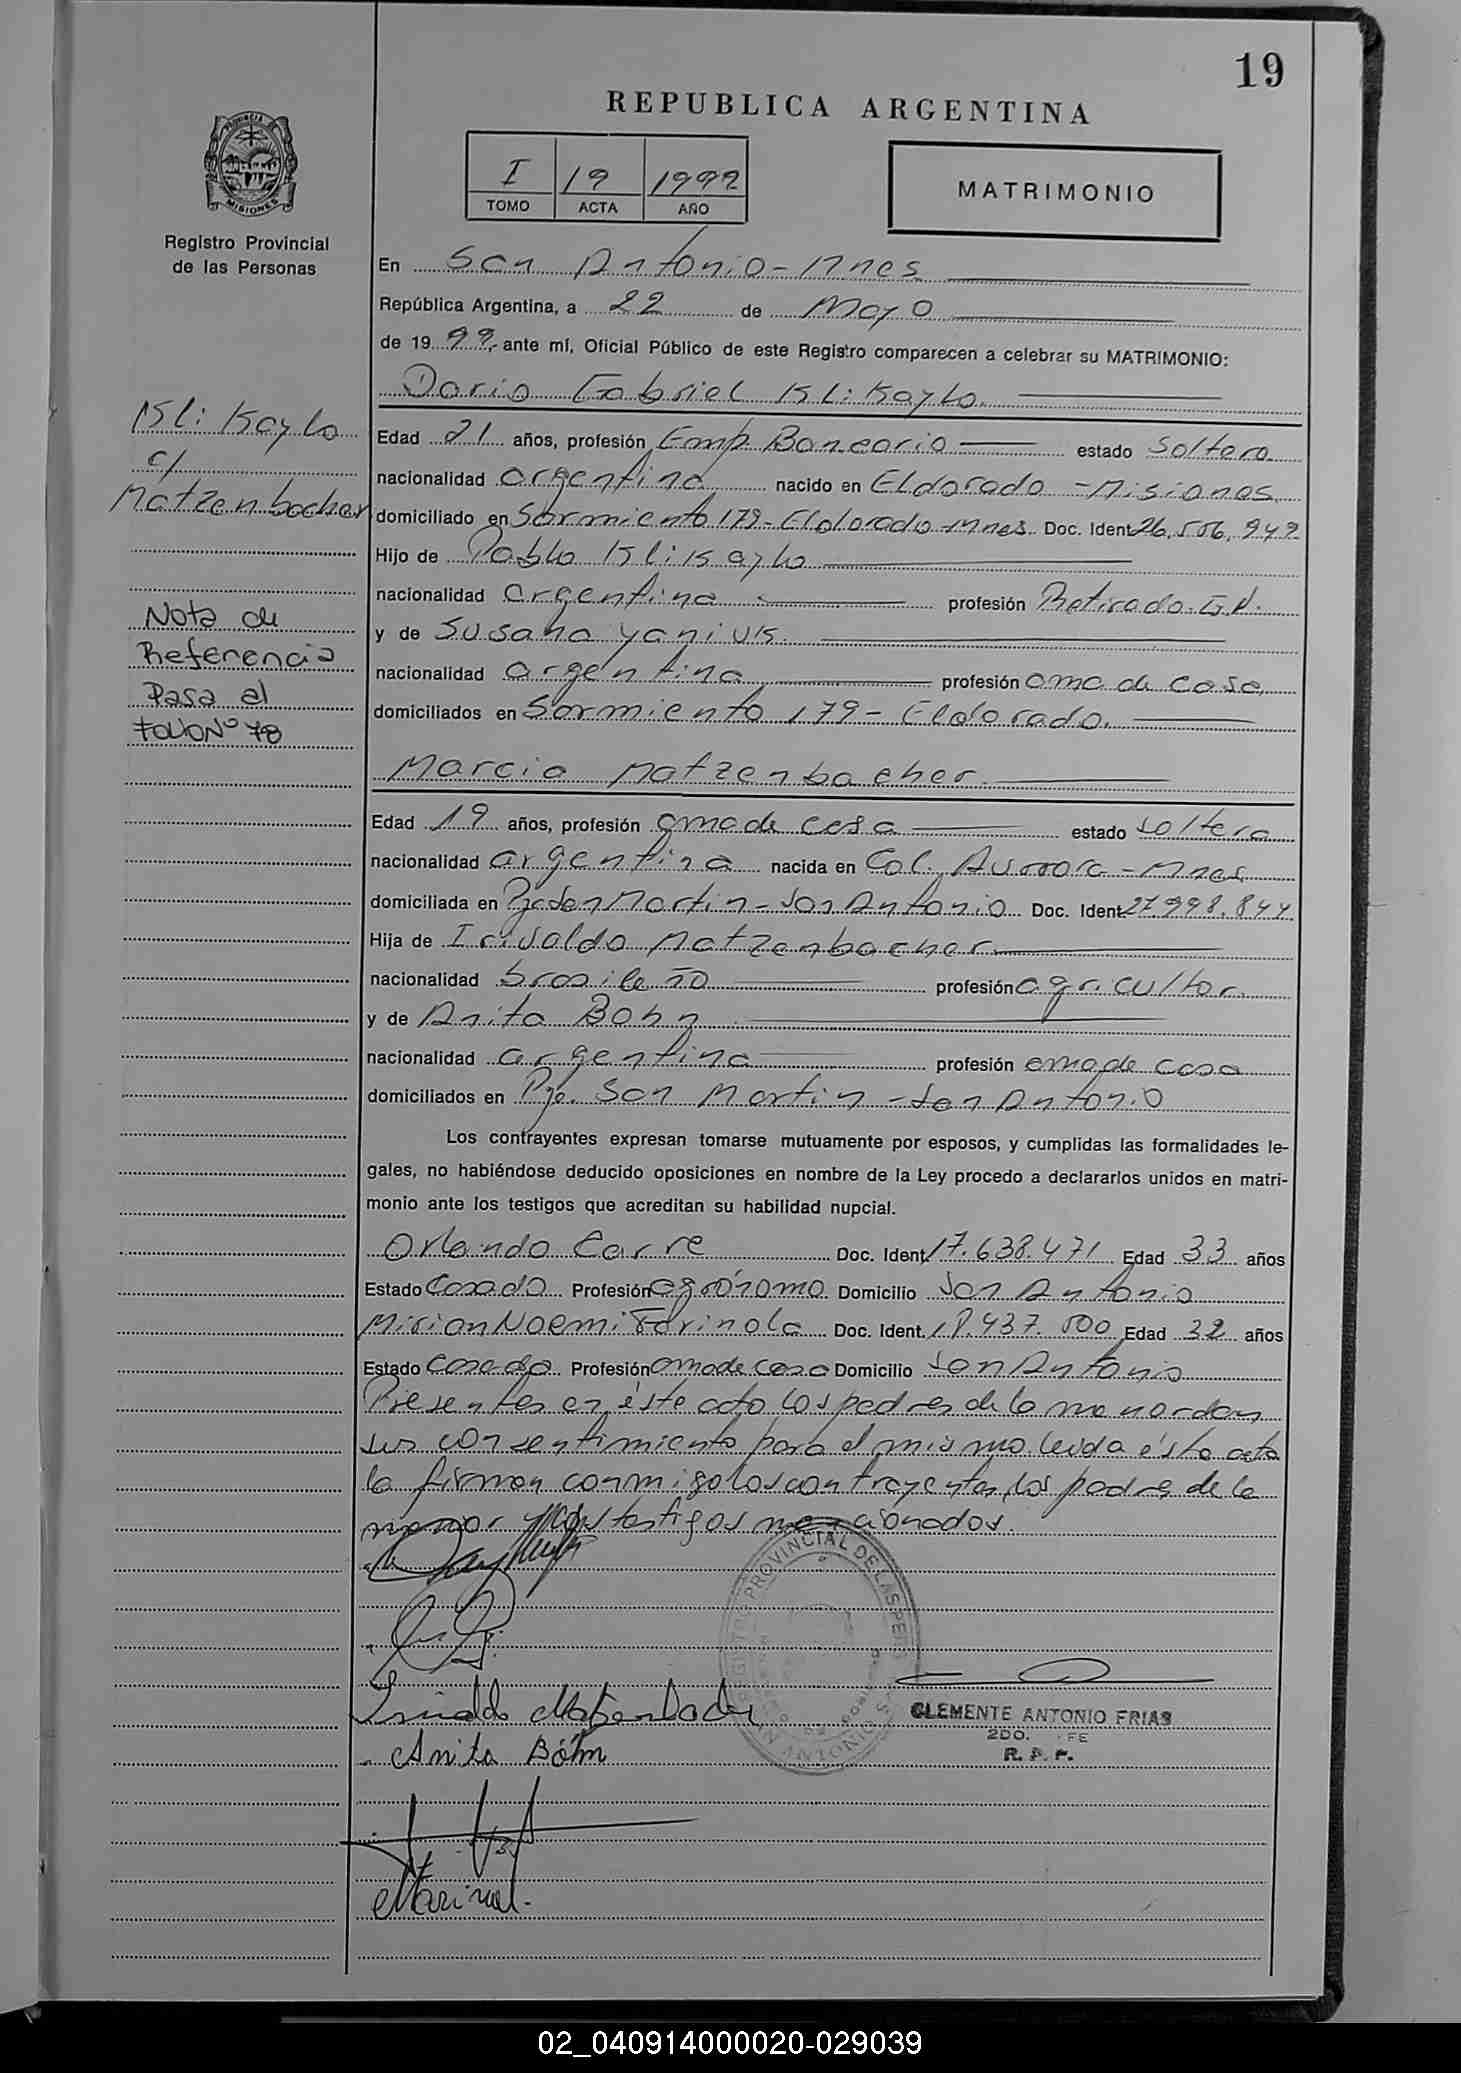 19
REPUBLICA ARGENTINA
PROVINCIA DE
MISIONES
Registro Provincial
de las Personas
I 19 1999
TOMO ACTA AÑO
MATRIMONIO
En San Antonio - Mnes
República Argentina, a 22 de Mayo
de 19 99, ante mí, Oficial Público de este Registro comparecen a celebrar su MATRIMONIO:
Dario Gabriel Klikaylo.
Klikaylo
c/
Matzenbacher
Edad 21 años, profesión Emp. Bancario estado soltero
nacionalidad argentina nacido en Eldorado - Misiones
domiciliado en Sarmiento 179 - Eldorado - Mnes. Doc. Ident. 26.556.949
Hijo de Pablo Klikaylo
nacionalidad argentina profesión Retirado G.N.
y de Susana Yaniuk.
nacionalidad argentina profesión ama de casa
domiciliados en Sarmiento 179 - Eldorado.
Nota de
Referencia
Pasa al
Folio Nº 78
Marcia Matzenbacher
Edad 19 años, profesión ama de casa estado soltera
nacionalidad argentina nacida en Col. Aurora - Mnes
domiciliada en Pje San Martin - San Antonio Doc. Ident. 27.998.844
Hija de Irivaldo Matzenbacher
nacionalidad brasileño profesión agricultor
y de Anita Bohn
nacionalidad argentina profesión ama de casa
domiciliados en Pje. San Martin - San Antonio
Los contrayentes expresan tomarse mutuamente por esposos, y cumplidas las formalidades le-
gales, no habiéndose deducido oposiciones en nombre de la Ley procedo a declararlos unidos en matri-
monio ante los testigos que acreditan su habilidad nupcial.
Orlando Carre Doc. Ident. 17.638.471 Edad 33 años
Estado Casado Profesión agrónomo Domicilio San Antonio
Mirian Noemi Farinola Doc. Ident. 18.437.500 Edad 32 años
Estado Casada Profesión ama de casa Domicilio San Antonio
Presentes en éste acto los padres de la menor dan
sus consentimiento para el mismo leida ésta acta
la firman conmigo los contrayentes, los padres de la
menor y los testigos mencionados.
REGISTRO PROVINCIAL DE LAS PERS
SAN ANTONIO
Anita Böhn
CLEMENTE ANTONIO FRIAS
2DO. FE
R. P. P.
02_040914000020-029039